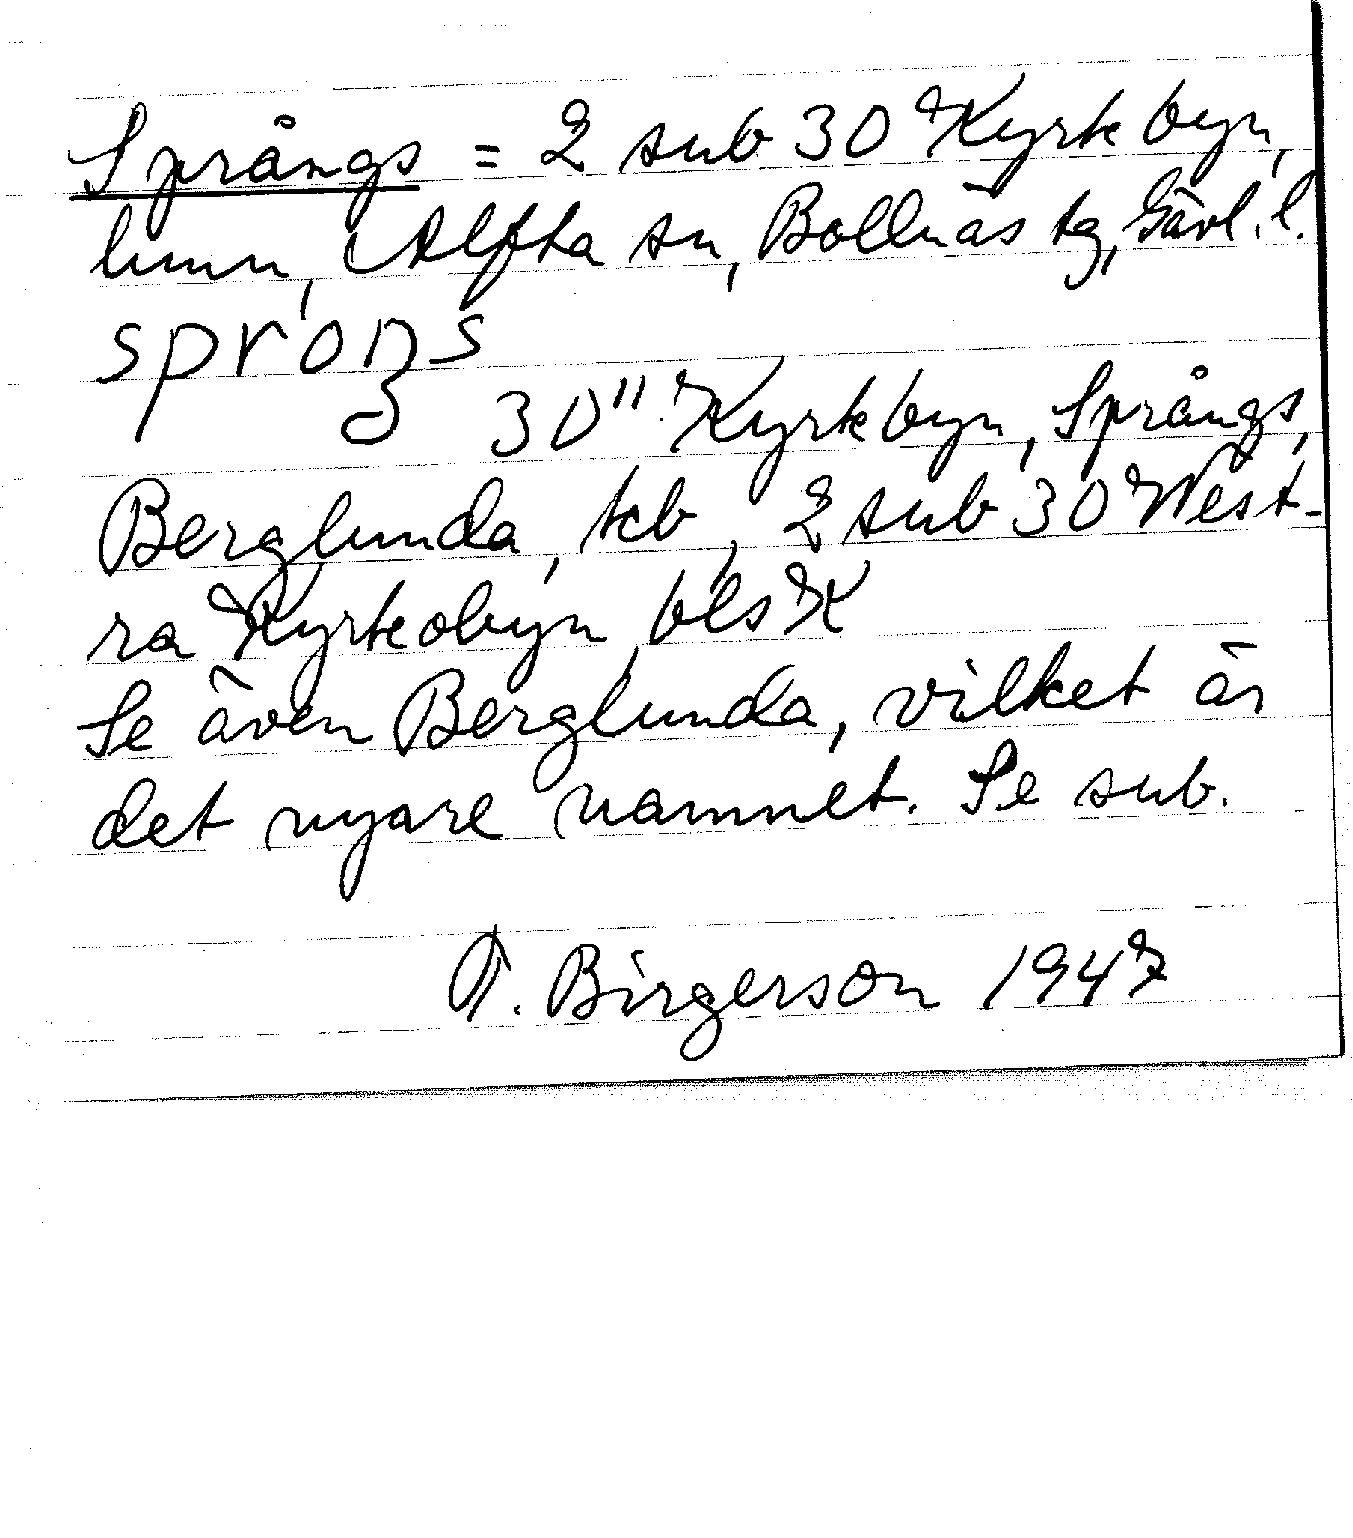 Språngs = 2 sub 30 Kyrkbyn,
hmn, Alfta sn, Bollnäs tg, Gävl. l.
sprɔŋs
30" Kyrkbyn, Språngs,
Berglunda, kb, 2 sub 30 West-
ra Kyrkobyn bls K
Se även Berglunda, vilket är
det nyare namnet. Se sub.
T. Birgerson 1947